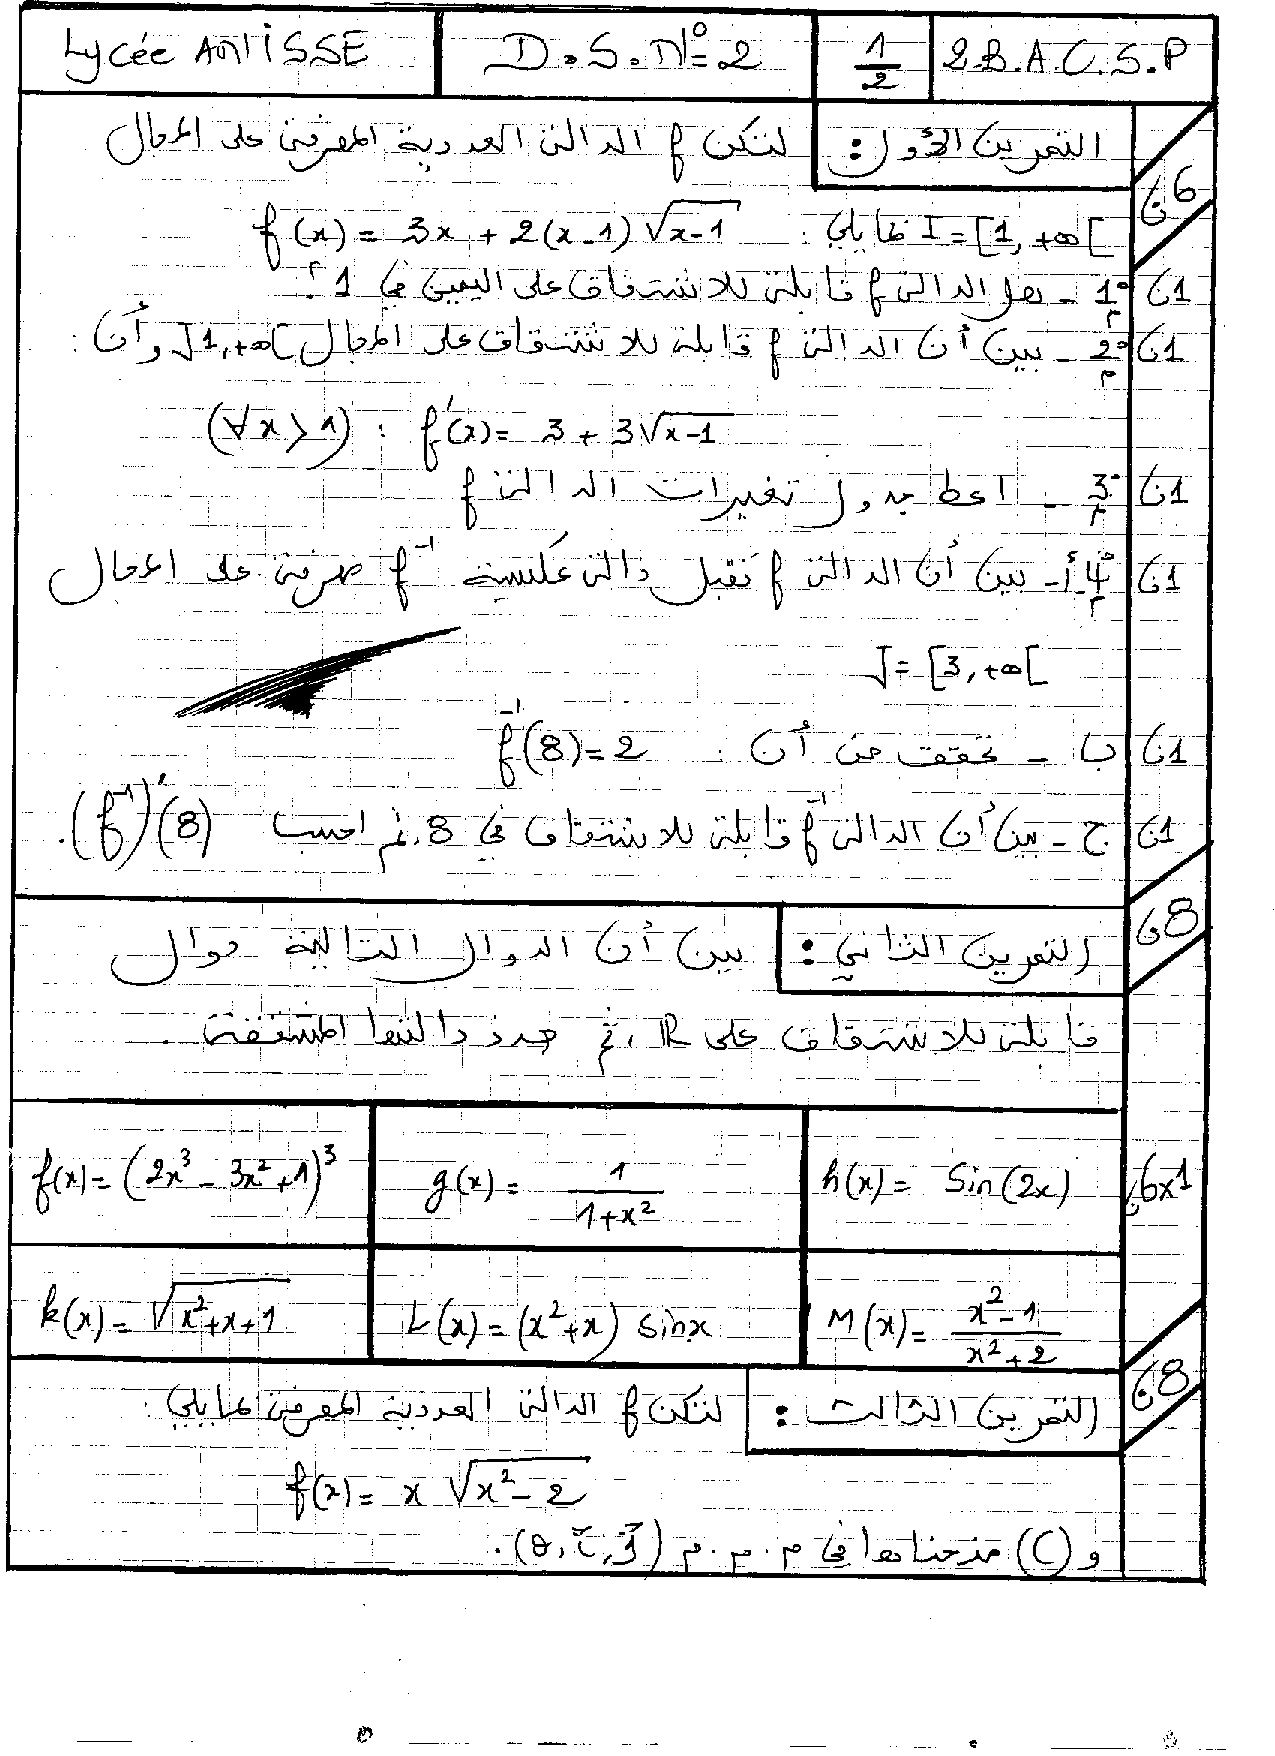 Lycée Anisse
D.S.N°=2
1/2
2.B.A.C.S.P
6ن
التمرين الأول: لتكن f الدالة العددية المعرفة على المجال
I=[1,+∞[ كما يلي: f(x) = 3x + 2(x-1)√(x-1)
1ن 1° - هل الدالة f قابلة للاشتقاق على اليمين في 1؟
1ن 2° - بين أن الدالة f قابلة للاشتقاق على المجال ]1,+∞[ وأن:
(∀x>1): f'(x) = 3 + 3√(x-1)
1ن 3° - اعط جدول تغيرات الدالة f
1ن 4° أ- بين أن الدالة f تقبل دالة عكسية f⁻¹ معرفة على المجال
J=[3,+∞[
1ن ب - تحقق من أن: f⁻¹(8)=2
1ن ج - بين أن الدالة f⁻¹ قابلة للاشتقاق في 8، ثم احسب (f⁻¹)'(8).
8ن
التمرين الثاني: بين أن الدوال التالية دوال
قابلة للاشتقاق على ℝ، ثم حدد دالتها المشتقة.
f(x) = (2x³ - 3x² + 1)³
g(x) = 1/(1+x²)
h(x) = Sin(2x)
6x1ن
k(x) = √(x²+x+1)
L(x) = (x²+x) sinx
M(x) = (x²-1)/(x²+2)
8ن
التمرين الثالث: لتكن f الدالة العددية المعرفة بمايلي:
f(x) = x √(x²-2)
و (C) منحناها في م.م.م (o, i⃗, j⃗).